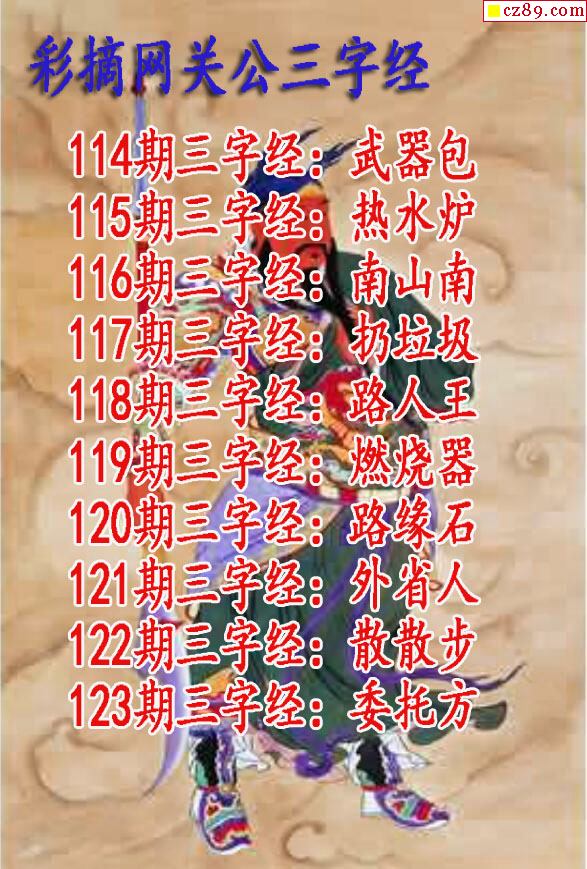 cz89.com
彩摘网关公三字经
114期三字经：武器包
115期三字经：热水炉
116期三字经：南山南
117期三字经：扔垃圾
118期三字经：路人王
119期三字经：燃烧器
120期三字经：路缘石
121期三字经：外省人
122期三字经：散散步
123期三字经：委托方